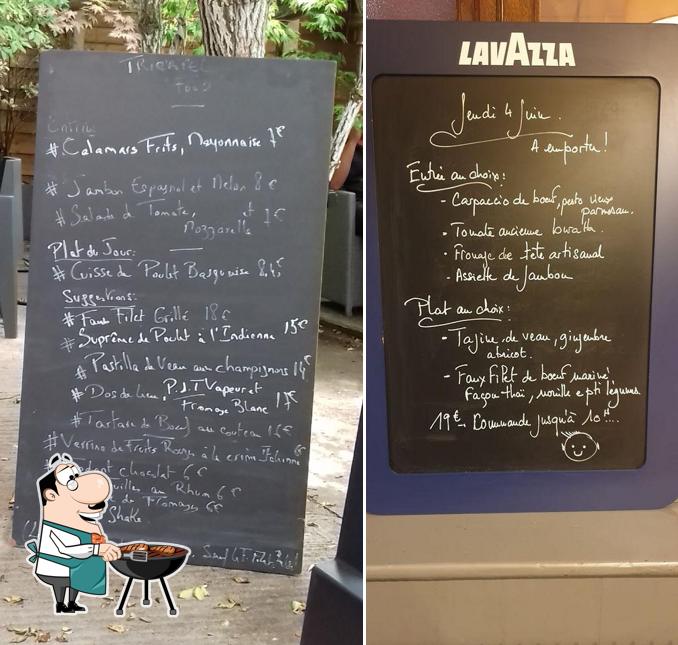 TRICATEL
FOOD
Entrées
# Calamars Frits, Mayonnaise 7€
# Jambon Espagnol et Melon 8€
# Salade de Tomate, et 7€
Mozzarella
Plat du Jour:
# Cuisse de Poulet Basquaise
Suggestions:
# Faux Filet Grillé 18€
# Suprême de Poulet à l'Indienne 15€
# Pastilla de Veau aux champignons 14€
# Dos de Lieu, P.d.T Vapeur et 17€
Fromage Blanc
# Tartare de Bœuf au couteau
# Verrine de Fruits Rouges à la crème Italienne
chocolat 6€
au Rhum 6€
de Fromages 6€
Shake
LAVAZZA
Jeudi 4 Juin.
A emporter!
Entrée au choix:
- Carpaccio de bœuf, pesto vieux
parmesan.
- Tomate ancienne burratta.
- Fromage de tête artisanal
- Assiette de Jambon
Plat au choix:
- Tajine de veau, gingembre
abricot.
- Faux filet de bœuf mariné
façon thaï, nouille e pti légumes
19€ Commande jusqu'à 10H....